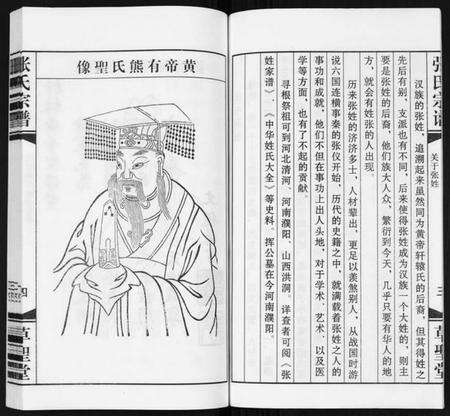 张氏宗谱
关于张姓
三
草聖堂
汉族的张姓，追溯起来虽然同为黄帝轩辕氏的后裔，但其得姓之
先后有别，支派也有不同，后来使得张姓成为汉族一个大姓的，则主
要是张姓的后裔，他们族大人众，繁衍到今天，几乎只要有华人的地
方，就会有姓张的人出现。
历来张姓的济济多士，人材辈出，更足以羡煞别人，从战国时游
说六国连横事秦的张仪开始，历代的史籍之中，就满载着张姓之人的
事功和成就，他们不但在事功上出人头地，对于学术、艺术，以及医
学等方面，也有了不起的贡献。
寻根祭祖可到河北清河、河南濮阳、山西洪洞，详查者可阅《张
姓家谱》、《中华姓氏大全》等史料。挥公墓在今河南濮阳。
黄帝有熊氏聖像
张氏宗谱
四
草聖堂